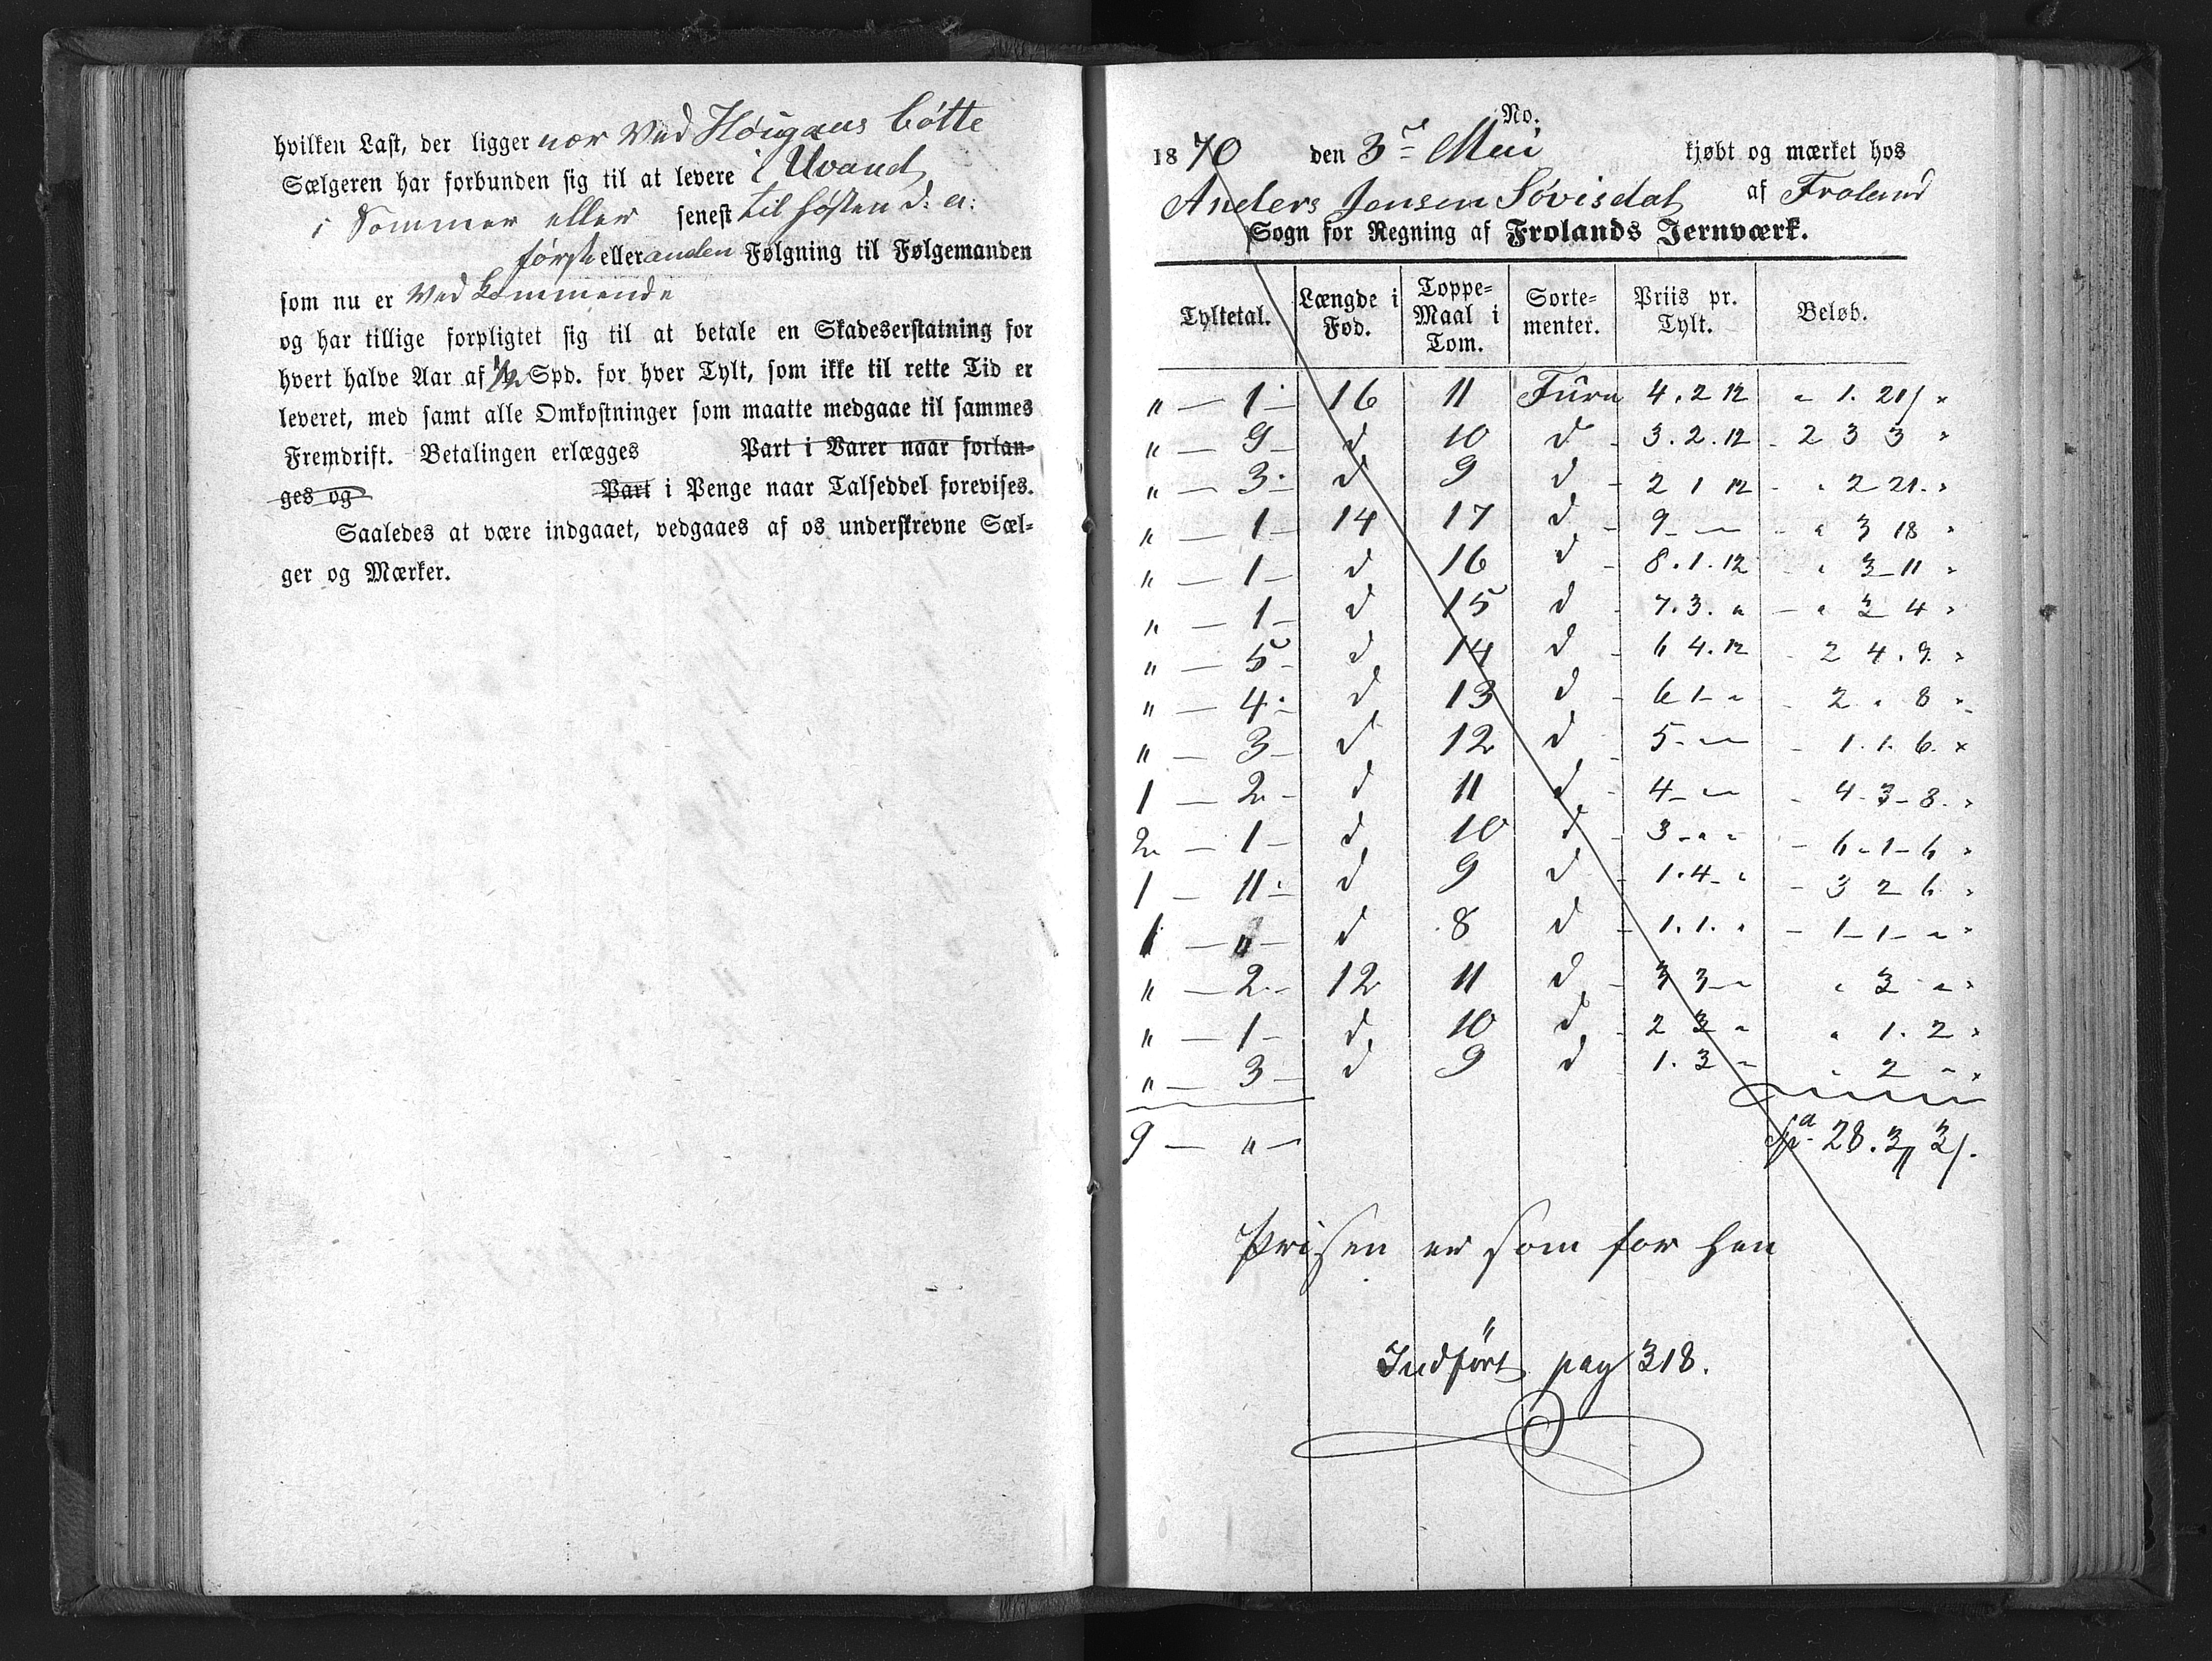 hvilken Last, der ligger nær Ved Höigaus bötte
Sælgeren har forbunden sig til at levere i Uvand
i Sommer eller senest til høsten d. a:
første eller anden Følgning til Følgemanden
som nu er Vedkommende
og har tillige forpligtet sig til at betale en Skadeserstatning for
hvert halve Aar af 1/2 Spd. for hver Tylt, som ikke til rette Tid er
leveret, med samt alle Omkostninger som maatte medgaae til sammes
Fremdrift. Betalingen erlægges Part i Varer naar forlan-
ges og Part i Penge naar Talseddel forevises.
Saaledes at være indgaaet, vedgaaes af os underskrevne Sæl-
ger og Mærker.
No.
1870 den 3die Mai kjøbt og mærket hos
Anders Jensen Sövisdal af Froland
Sogn for Regning af Frolands Jernværk.
Tyltetal. Længde i Fod. Toppe-Maal i Tom. Sorte-menter. Priis pr. Tylt. Beløb.
" — 1 - 16 11 Furu 4. 2 12 " 1. 21 "
" — 9 - d 10 d - 3. 2. 12 - 2 3 3 "
" — 3 - d 9 d - 2 1 12 - " 2 21. "
" — 1 - 14 17 d - 9 - " - " 3 18 "
" — 1 - d 16 d - 8. 1. 12 - " 3 - 11 "
" — 1 - d 15 d - 7. 3. " - " 3 4 "
" — 5 - d 14 d - 6 4. 12 - 2 4. 9. "
" — 4 - d 13 d - 6 1 - " - 2 " 8 "
" — 3 - d 12 d - 5 - " - 1. 1. 6. "
1 — 2 - d 11 d - 4 - " - 4. 3 - 8. "
2 — 1 - d 10 d - 3 - " " - 6 - 1 - 6 "
1 — 11 - d 9 d - 1. 4 - " - 3 2 6 "
1 — " - d 8 d - 1. 1. " - 1 - 1 - " "
" — 2 - 12 11 d - 3 3 - " " 3 " "
" — 1 - d 10 d - 2 3 " " 1. 2 "
" — 3 - d 9 d - 1. 3 " " 2 " "
9 — " — Spd. 28. 3 " 3
Prisen er som for hen
Indført pag 318.